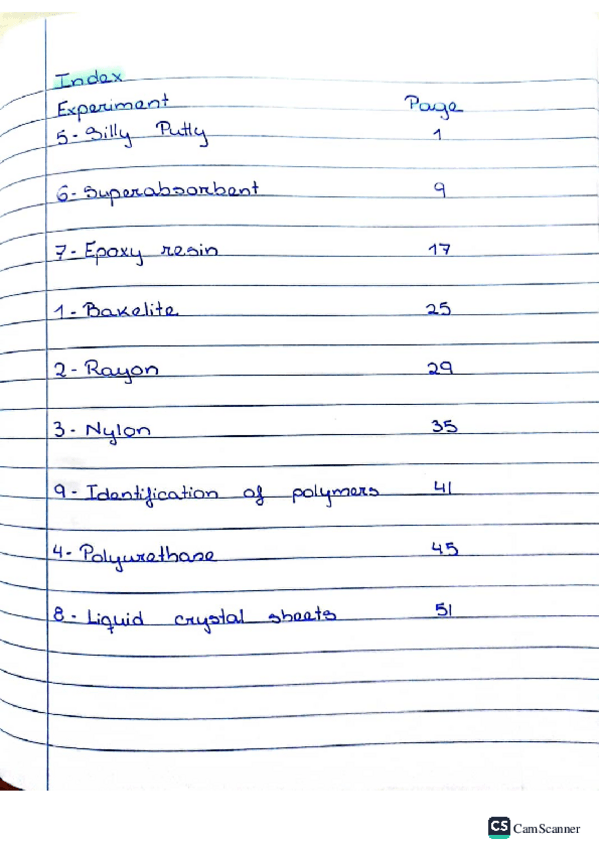 Index
Experiment Page
5- Silly Putty 1
6- Superabsorbent 9
7- Epoxy resin 17
1- Bakelite 25
2- Rayon 29
3- Nylon 35
9- Identification of polymers 41
4- Polyurethane 45
8- Liquid crystal sheets 51
CS CamScanner